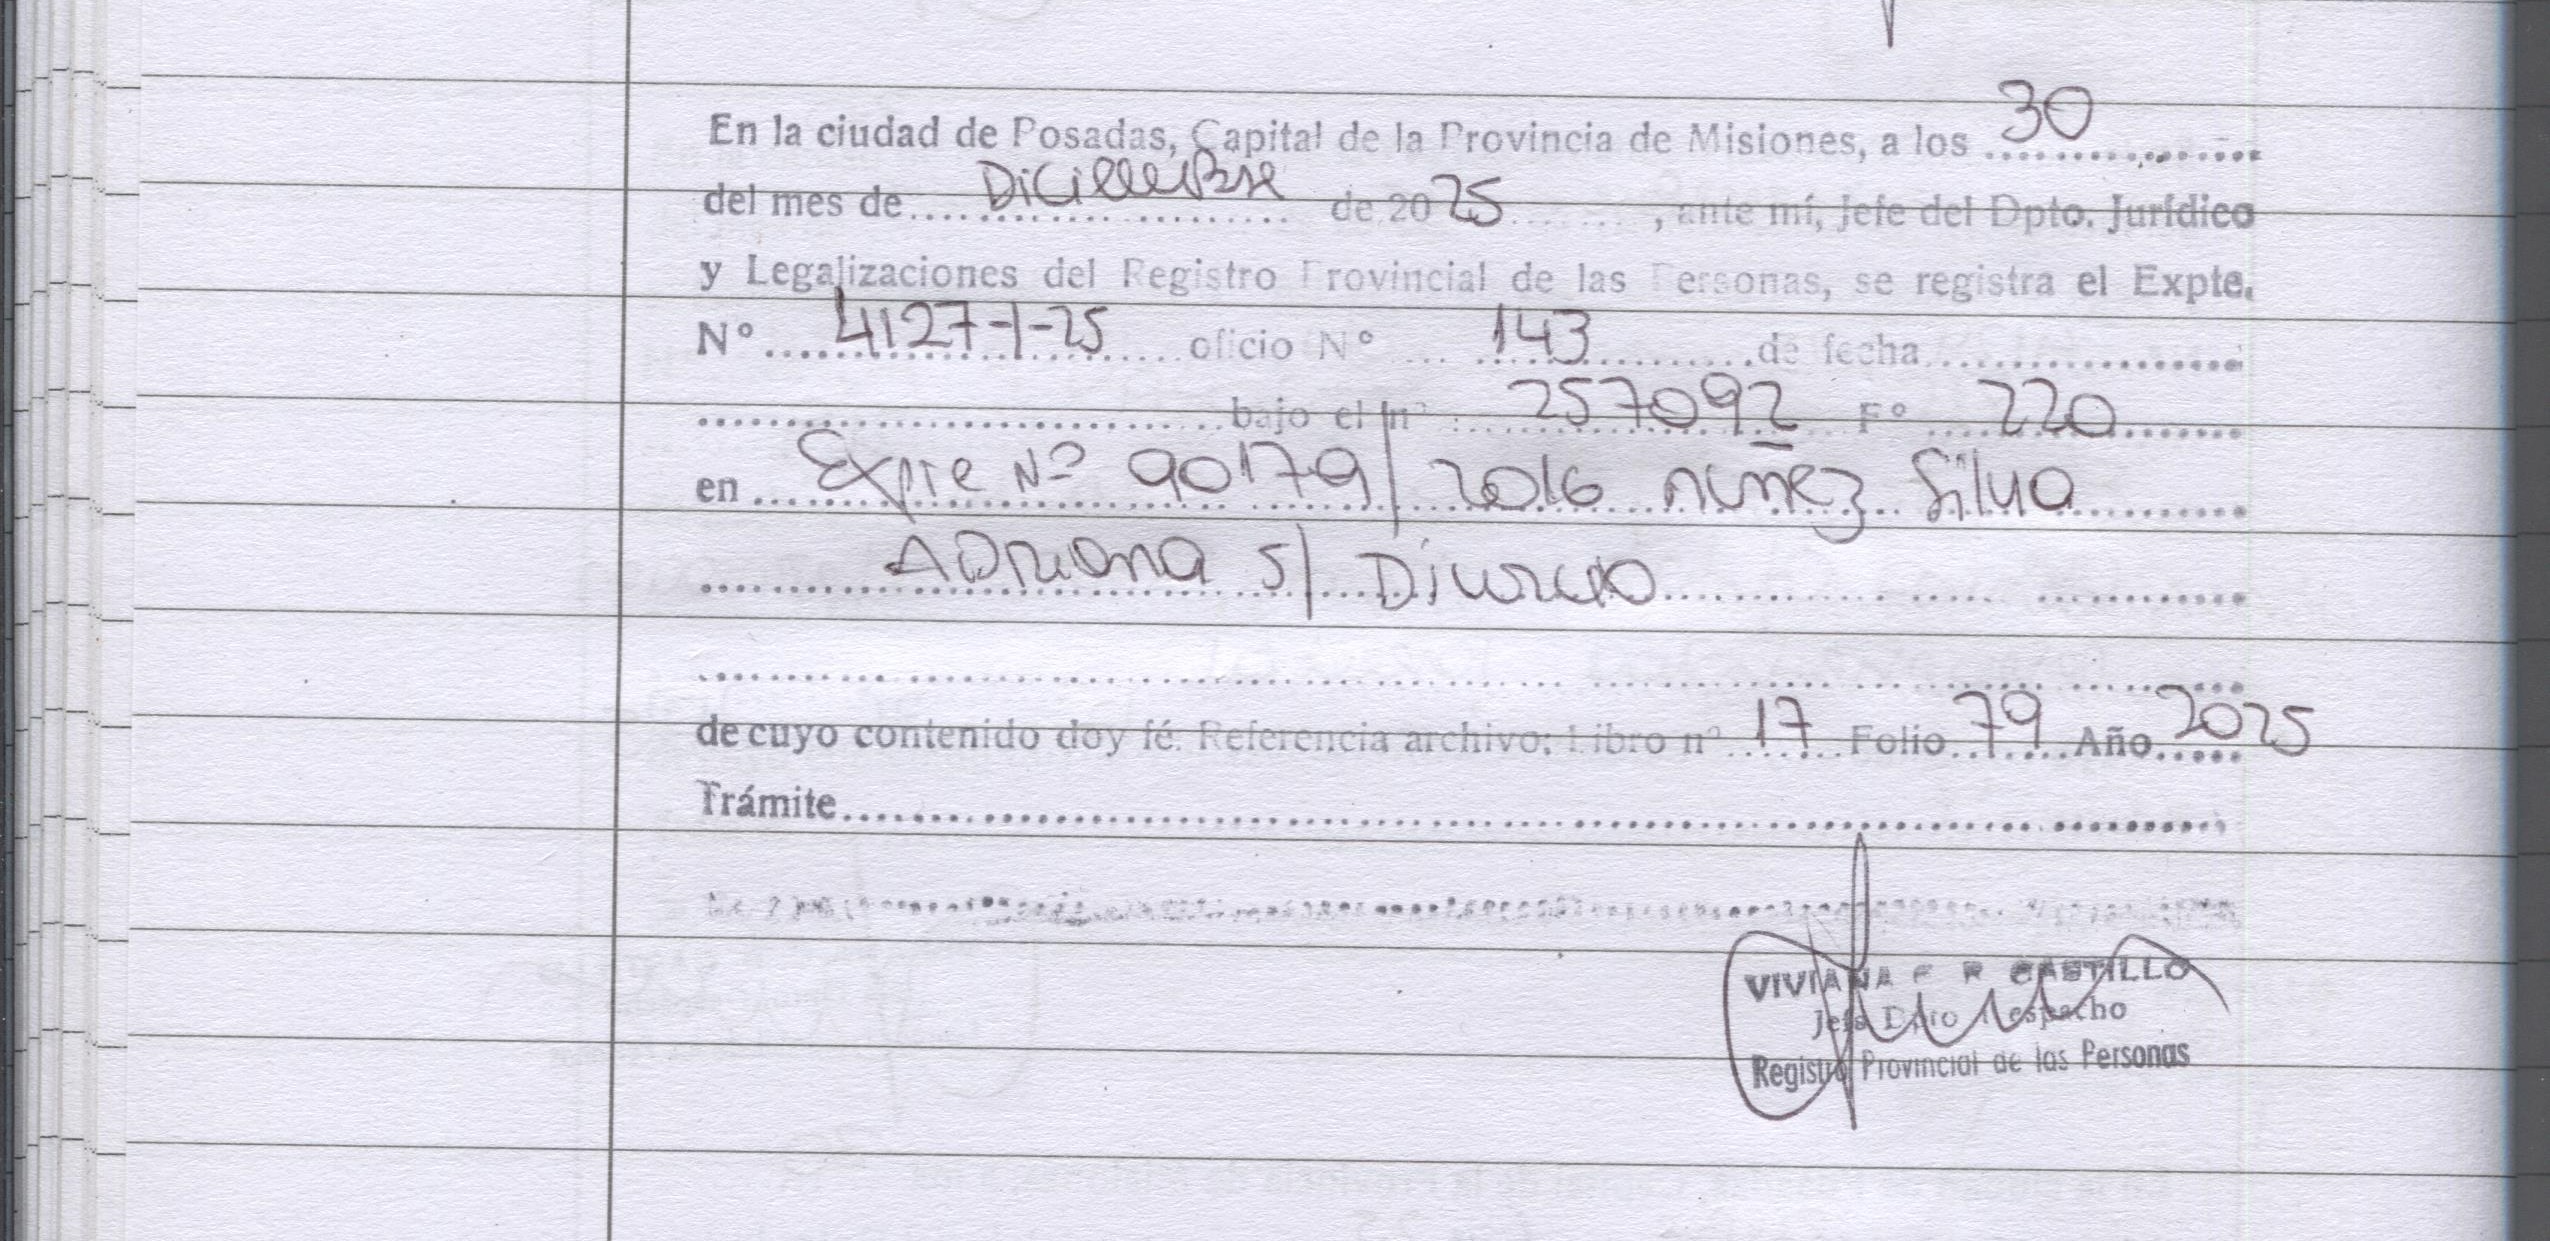 En la ciudad de Posadas, Capital de la Provincia de Misiones, a los 30
del mes de Diciembre de 2025, ante mí, Jefe del Dpto. Jurídico
y Legalizaciones del Registro Provincial de las Personas, se registra el Expte.
Nº 4127-I-25 oficio Nº 143 de fecha
bajo el nº 257092 Fº 220
en Expte Nº 90179/2016 Nuñez Silva
Adriana s/ Divorcio
de cuyo contenido doy fé. Referencia archivo: Libro nº 17 Folio 79 Año 2025
Trámite
VIVIANA F R CASTILLO
Jefa Dpto Despacho
Registro Provincial de las Personas